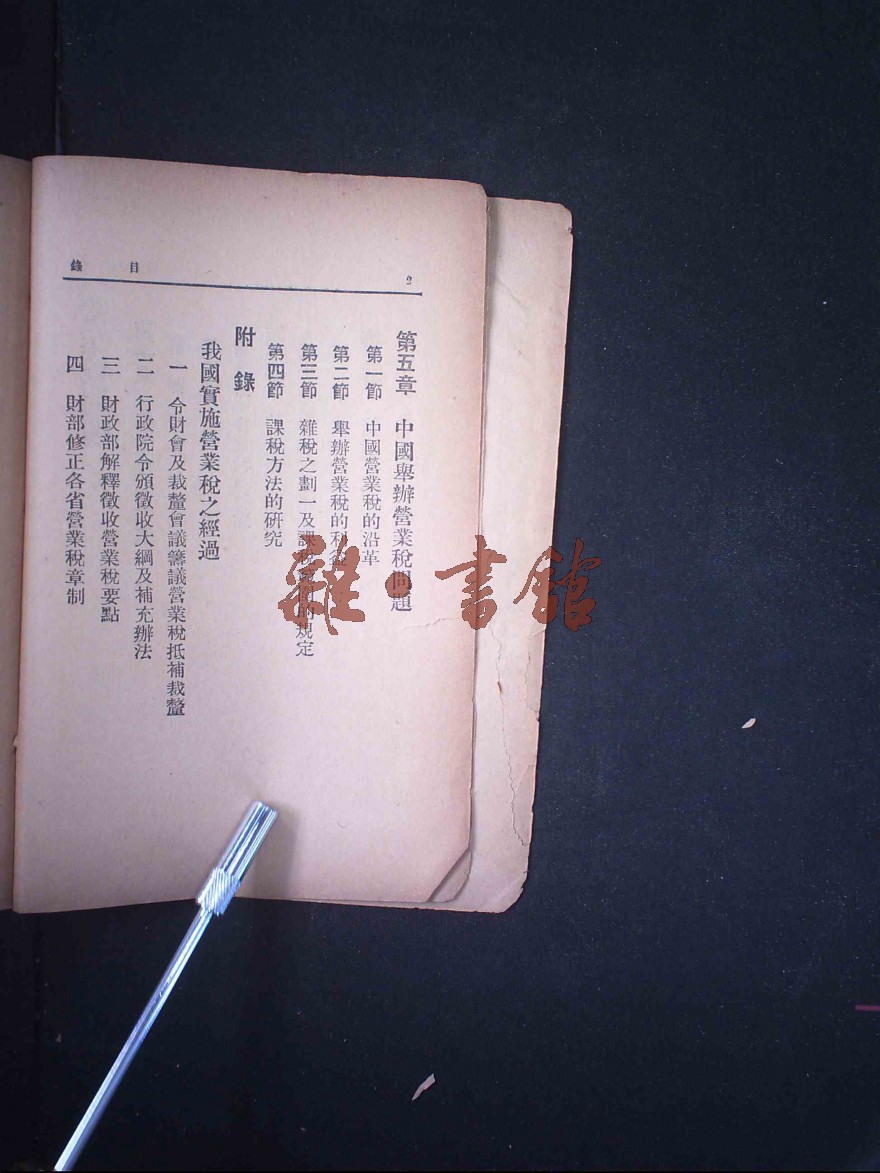 目錄
2
第五章 中國舉辦營業稅問題
第一節 中國營業稅的沿革
第二節 舉辦營業稅的利益
第三節 雜稅之劃一及課稅範圍的規定
第四節 課稅方法的研究
附錄
我國實施營業稅之經過
一 令財會及裁釐會議籌議營業稅抵補裁釐
二 行政院令頒徵收大綱及補充辦法
三 財政部解釋徵收營業稅要點
四 財部修正各省營業稅章制
雜·書館